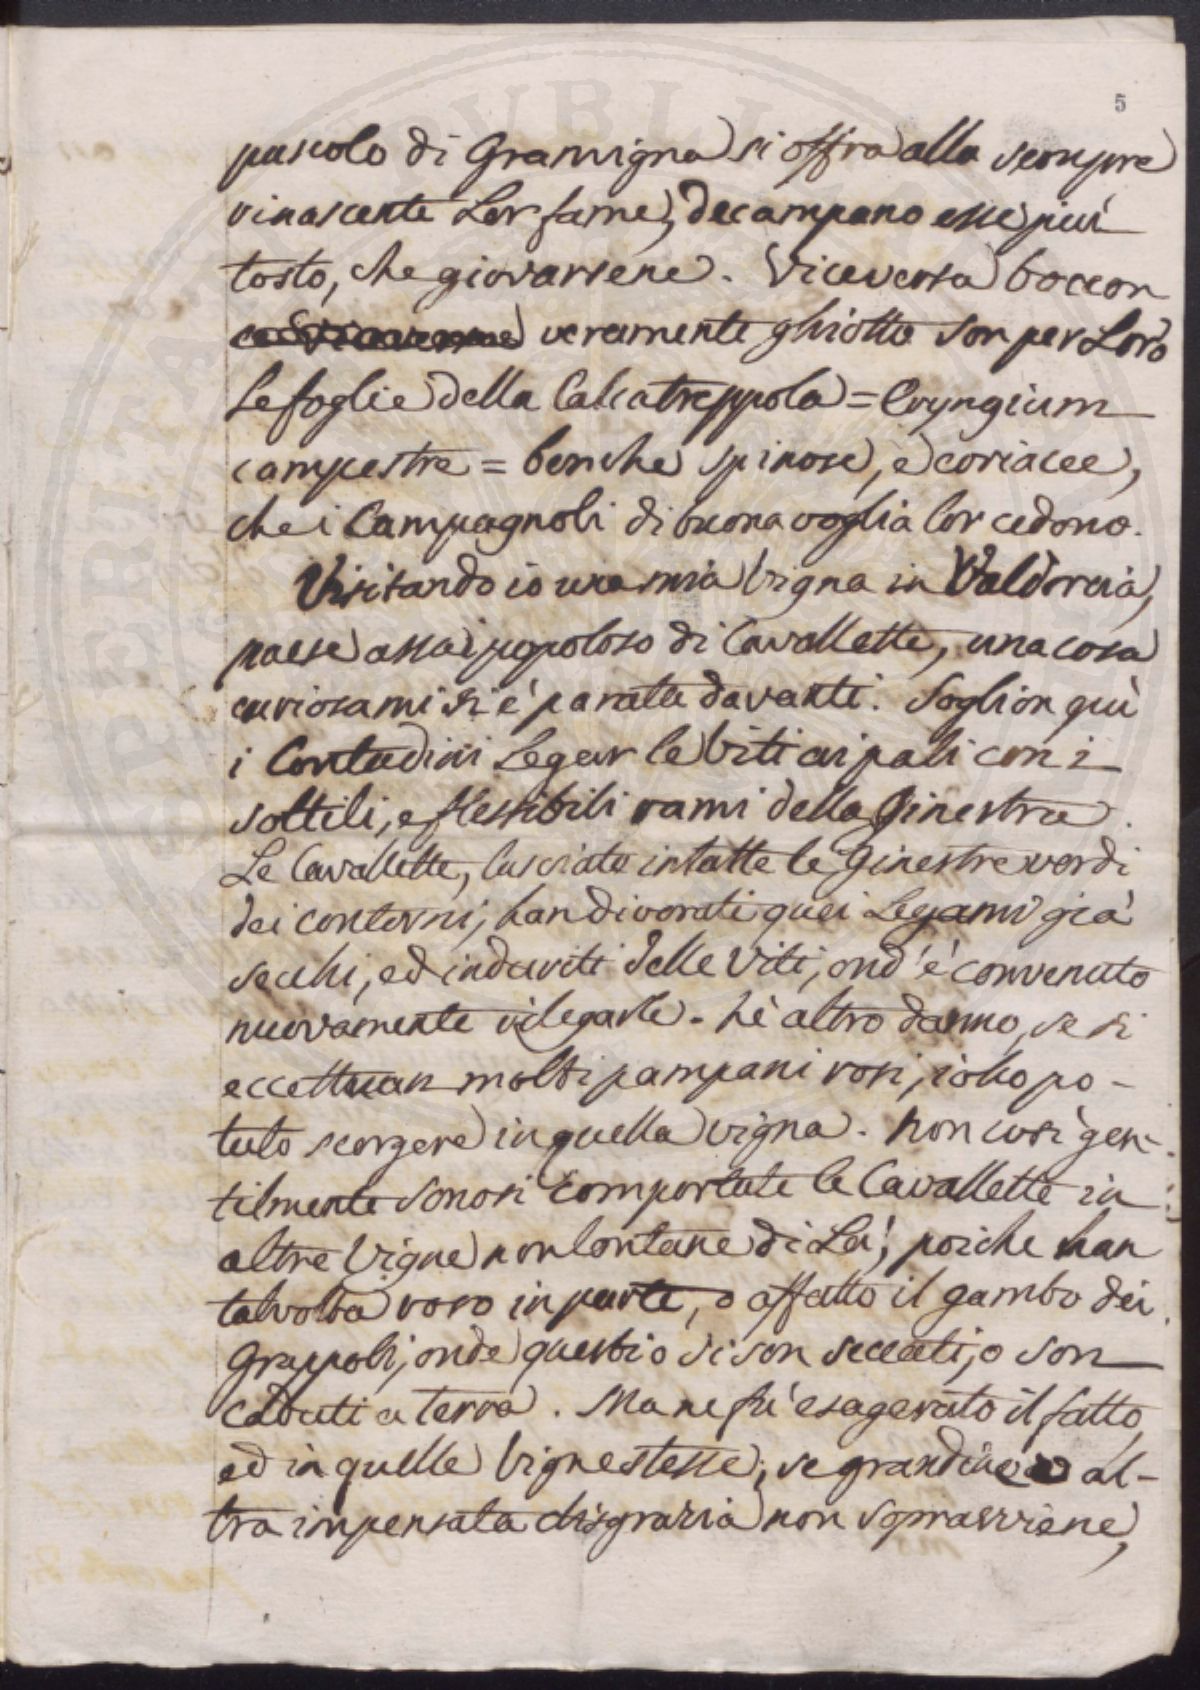 5
pascolo di Gramigna si offra alla sempre
rinascente Lor fame, decampano esse piú
tosto, che giovarsene. Viceversa boccon
veramente ghiotto son per Loro
Le foglie della Calcatreppola = Eryngium
campestre = benche spinose, e coriacee,
che i Campagnoli di buona voglia lor cedono.
Visitando io una mia Vigna in Valdorcia,
paese assai popoloso di Cavallette, una cosa
curiosa mi si è parata davanti. Soglion quì
i Contadini Legar le Viti ai pali con i
sottili, e flessibili rami della Ginestra.
Le Cavallette, lasciate intatte le Ginestre verdi
dei contorni, han divorati quei Legami già
secchi, ed induriti delle Viti, ond'è convenuto
nuovamente rilegarle. Nè altro danno, se si
eccettuan molti pampani rosi, io ho po-
tuto scorgere in quella vigna. Non cosi gen-
tilmente sonosi comportate le Cavallette in
altre Vigne non lontane di Là; poiche han
talvolta roso in parte, o affatto il gambo dei
Grappoli, onde questi o si son seccati, o son
caduti a terra. Ma ne fù esagerato il fatto,
ed in quelle Vigne stesse, se grandine o al-
tra impensata disgrazia non sopravviene,